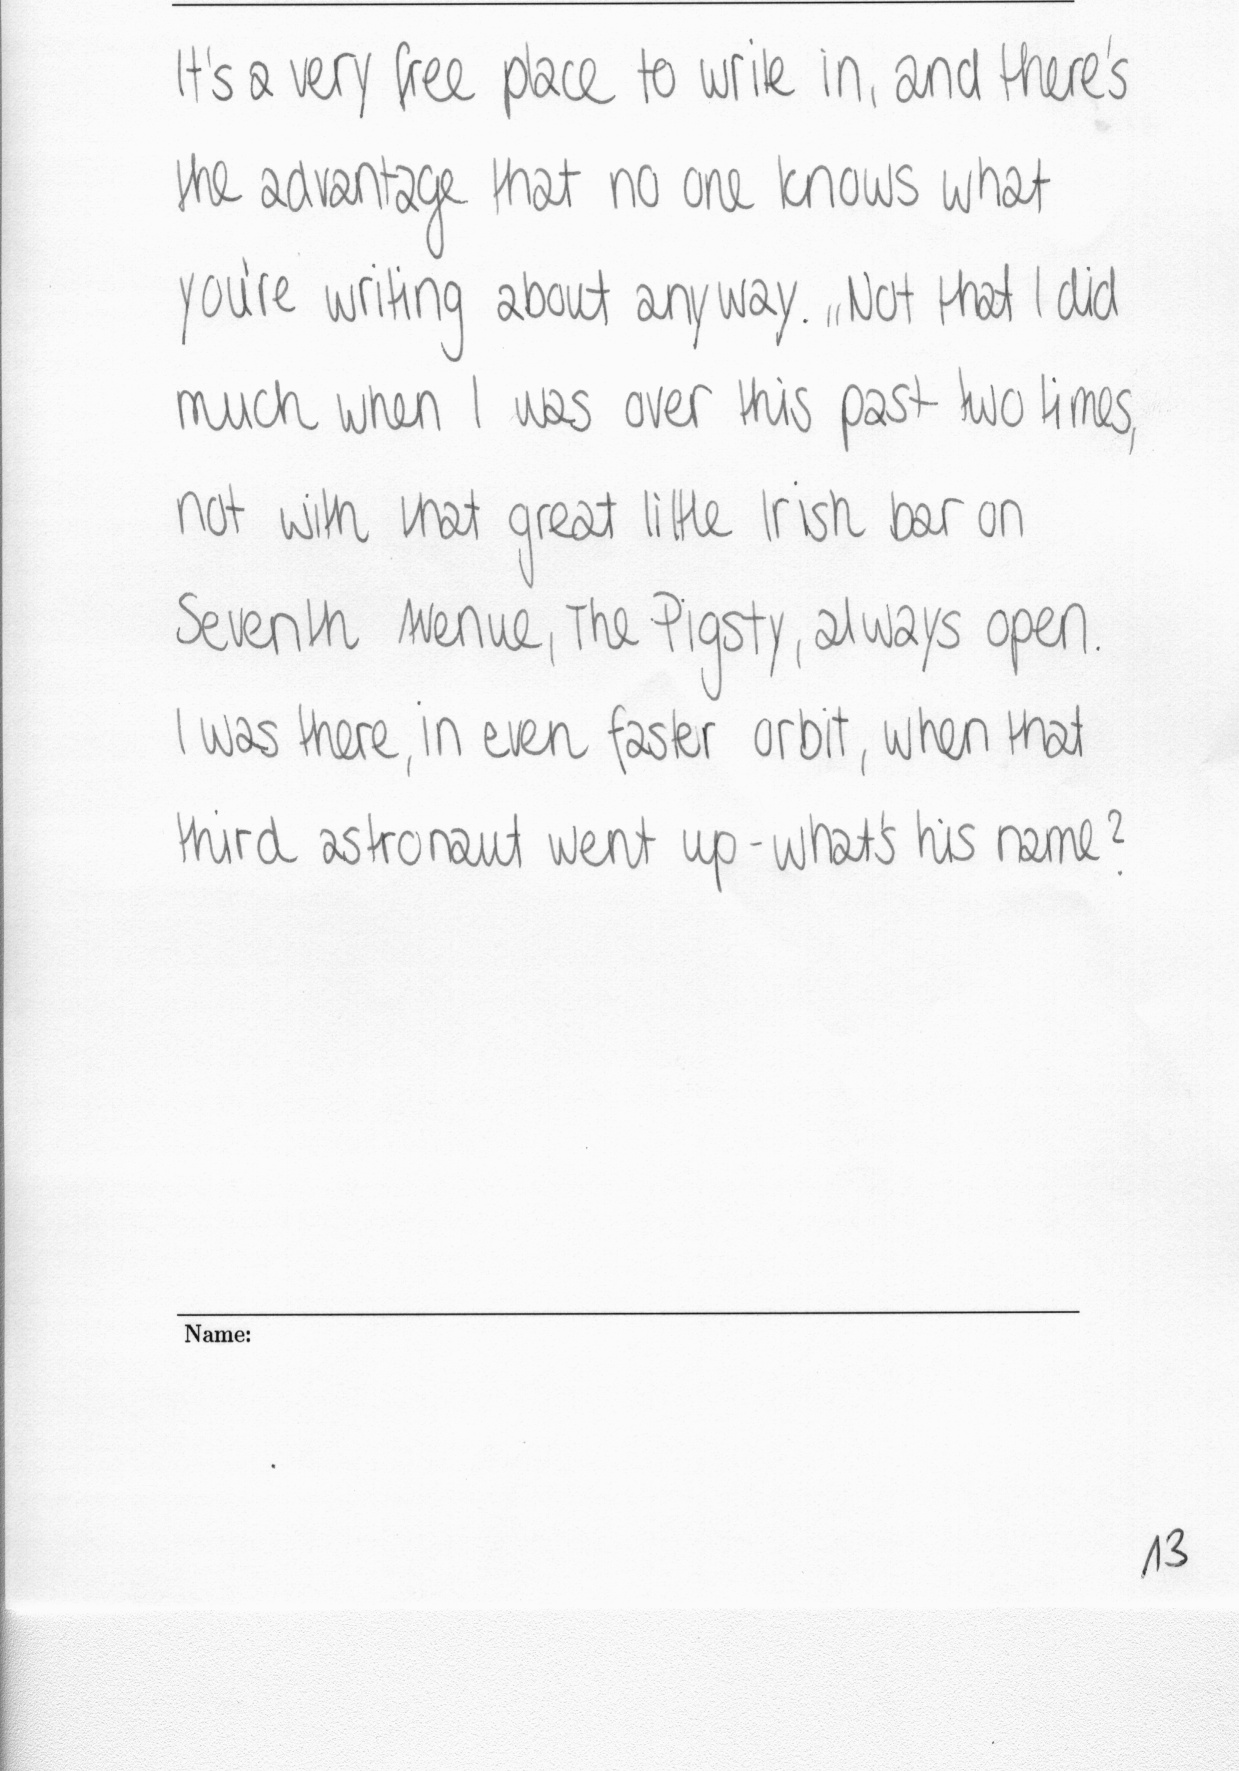 It's a very free place to write in, and there's
the advantage that no one knows what
you're writing about anyway. „Not that I did
much when I was over this past two times,
not with that great little Irish bar on
Seventh Avenue, The Pigsty, always open.
I was there, in even faster orbit, when that
third astronaut went up - what's his name?
Name:
13